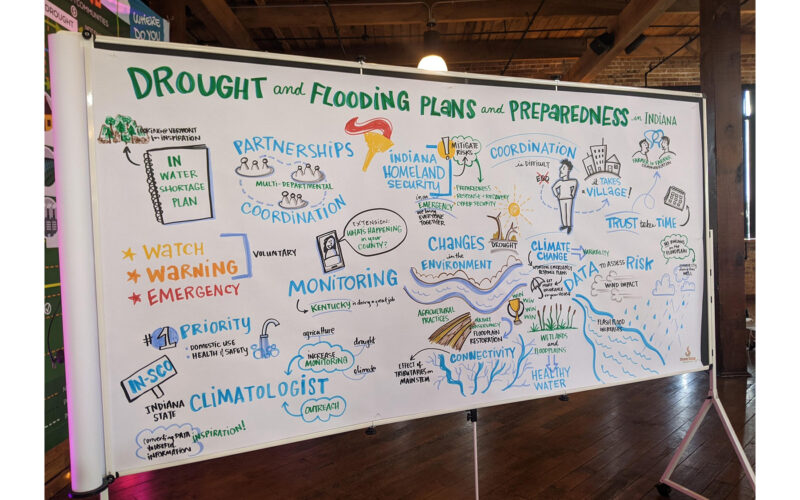 DROUGHT
COMMUNITIES
WHERE
DO YOU
DROUGHT and FLOODING PLANS and PREPAREDNESS in INDIANA
LOOKING @ VERMONT
for INSPIRATION
IN
WATER
SHORTAGE
PLAN
PARTNERSHIPS
MULTI-DEPARTMENTAL
COORDINATION
INDIANA
HOMELAND
SECURITY
MITIGATE
RISKS
PREPAREDNESS
RESPONSE + RECOVERY
CYBER SECURITY
in an
EMERGENCY
we bring
EVERYONE
TOGETHER
COORDINATION
is DIFFICULT
it TAKES
a VILLAGE!
TRUST takes TIME
WATCH
WARNING
EMERGENCY
VOLUNTARY
EXTENSION:
WHAT'S HAPPENING
in YOUR
COUNTY?
MONITORING
KENTUCKY is doing a great job
DROUGHT
CHANGES
in the
ENVIRONMENT
CLIMATE
CHANGE
VARIABILITY
DATA to ASSESS RISK
WIND IMPACT
FLASH FLOOD
#1 PRIORITY
DOMESTIC USE
HEALTH & SAFETY
agriculture
drought
climate
INCREASE
MONITORING
AGRICULTURAL
PRACTICES
FLOODPLAIN
RESTORATION
WIN
WIN
WIN
WETLANDS
and
FLOODPLAINS
CONNECTIVITY
EFFECT of
TRIBUTARIES on
MAIN STEM
HEALTHY
WATER
IN-SCO
INDIANA
STATE
CLIMATOLOGIST
OUTREACH
CONVERTING DATA
to USEFUL
INFORMATION
INSPIRATION!